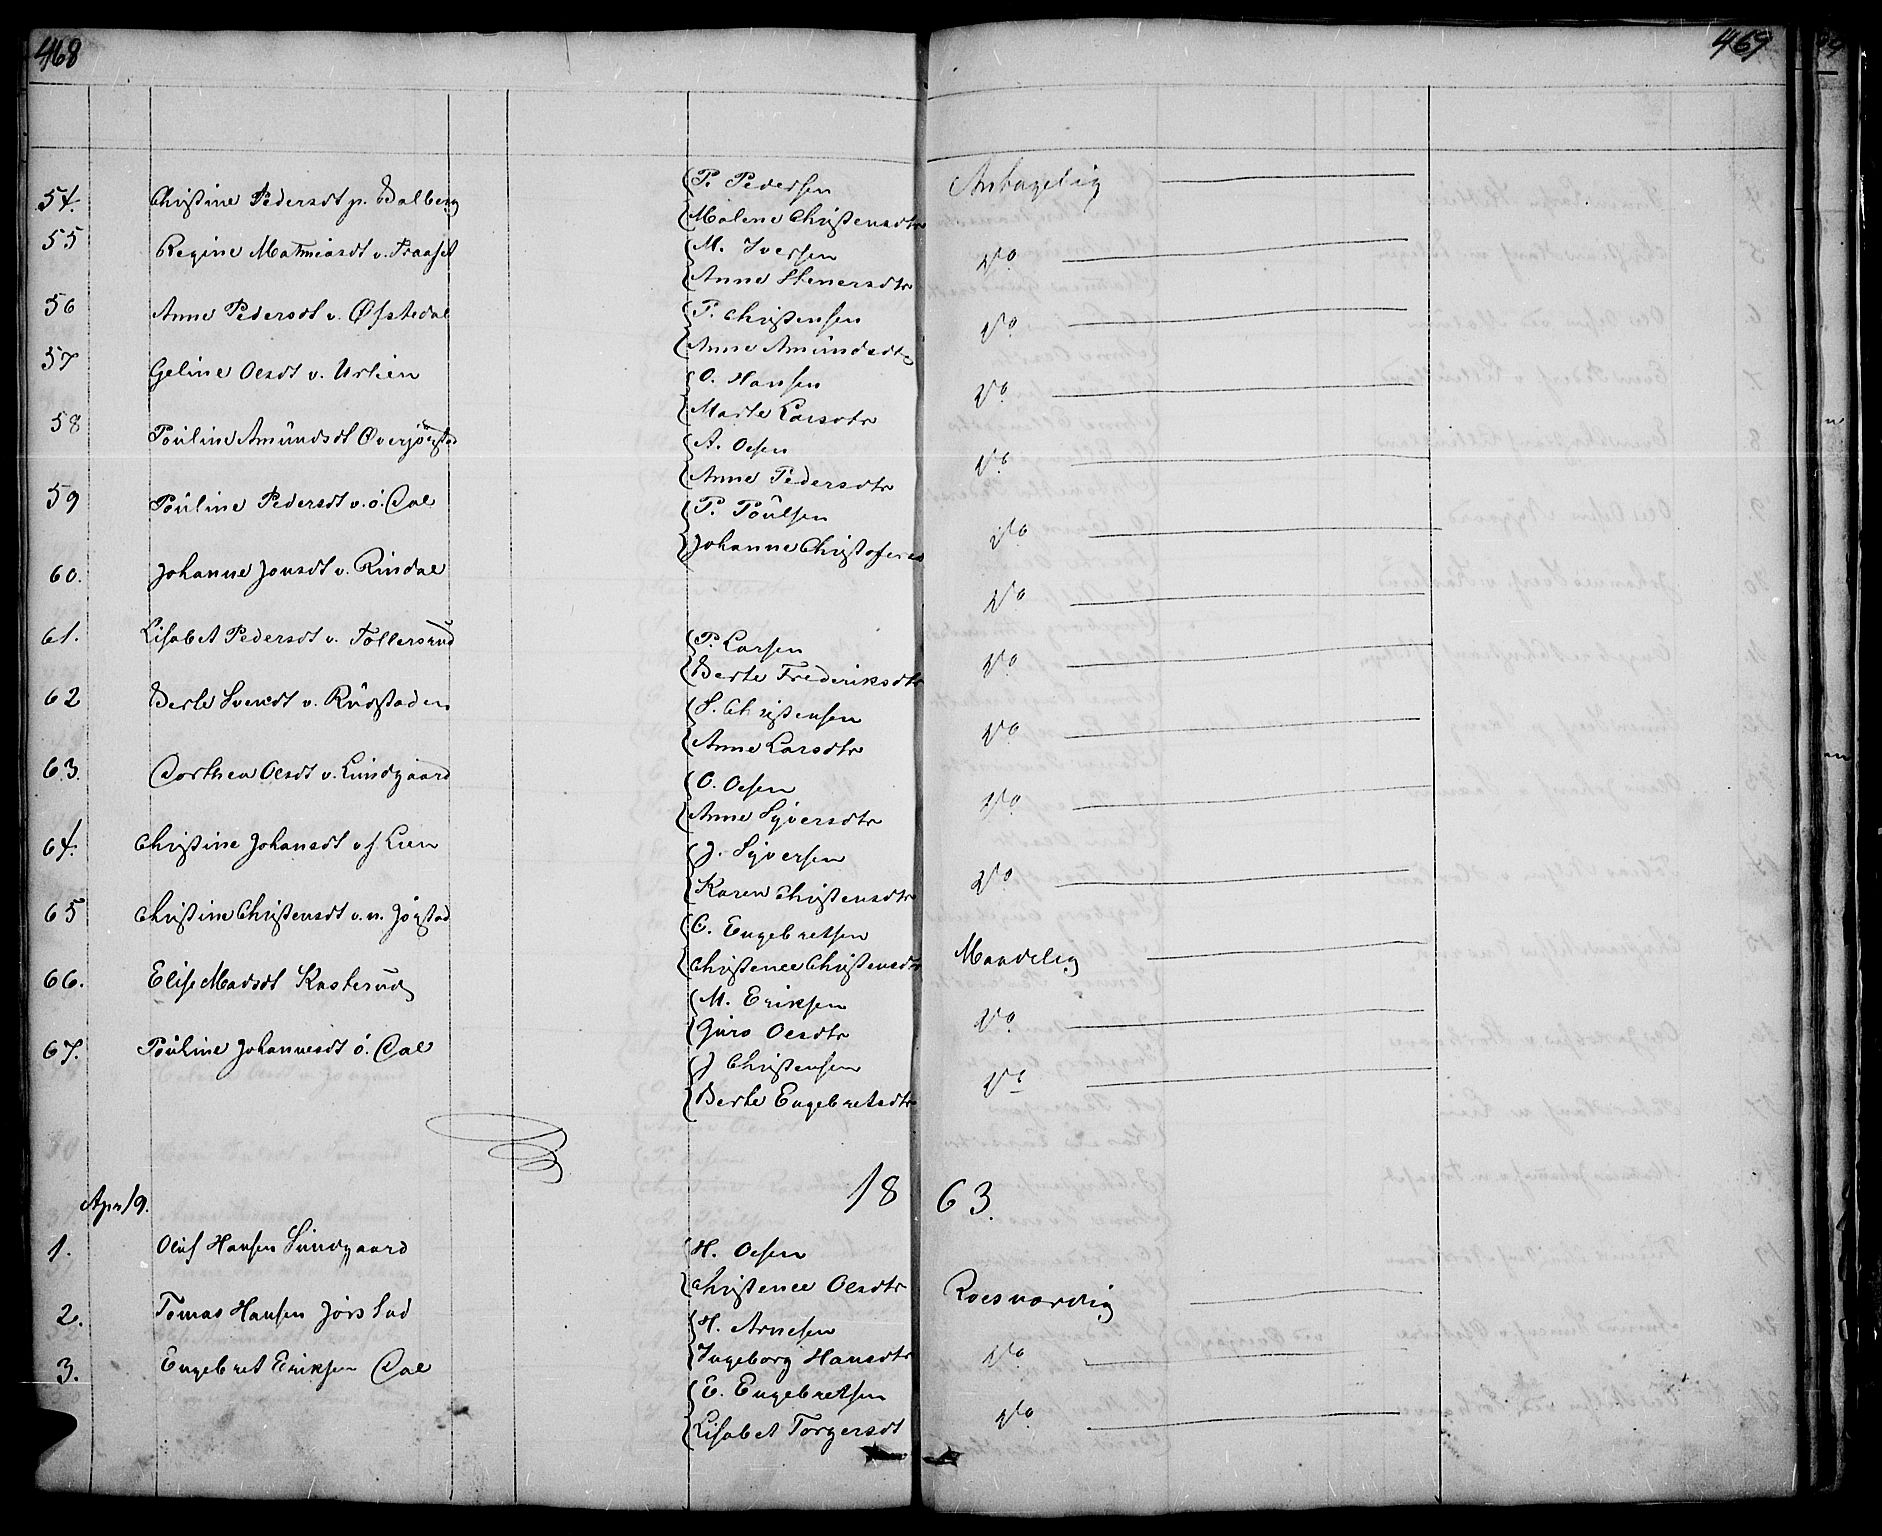 468
469
54. Christine Pedersdt p. Dalberg
{P. Pedersen
{Malene Christensdtr
Antagelig
55 Regine Mathiasdt v. Fraaset
{M. Iversen
{Anne Stenersdtr
Do
56 Anne Pedersdt v. Øfstedal
{P. Christensen
{Anne Amündsdtr
Do
57 Geline Olsdt v. Urlien
{O. Hansen
{Marte Larsdtr
Do
58 Pouline Amündsdt Øverjørstad
{A. Olsen
{Anne Pedersdtr
Do
59 Pouline Pedersdt v. ö. Dal
{P. Poulsen
{Johanne Christofersd
Do
60. Johanne Jonsdt v. Rindal
Do
61. Lisabet Pedersdt v. Tollersrud
{P. Larsen
{Berte Frederiksdtr
Do
62 Berte Svendt v. Rudstaden
{S. Christensen
{Anne Larsdtr
Do
63. Dorthea Olsdt v. Lundgaard
{O. Olsen
{Anne Syversdtr
Do
64. Christine Johansdt v f Lien
{J. Syversen
{Karen Christensdtr
Do
65 Christine Christensdt v. n. Jørstad
{C. Engebretsen
{Christence Christensdtr
Maadelig
66. Elise Madsdt Kasterud
{M. Eriksen
{Guro Olsdtr
Do
67. Pouline Johannesdt ö. Dal
{J Christensen
{Berte Engebretsdtr
Do
1863.
Apr 19.
1. Oluf Hansen Sundgaard
{H. Olsen
{Christence Olsdtr
Roesværdig
2. Tomas Hansen Jørstad
{H. Arnesen
{Ingeborg Hansdtr
Do
3. Engebret Eriksen Dal
{E. Engebretsen
{Lisabet Torgersdt
Do